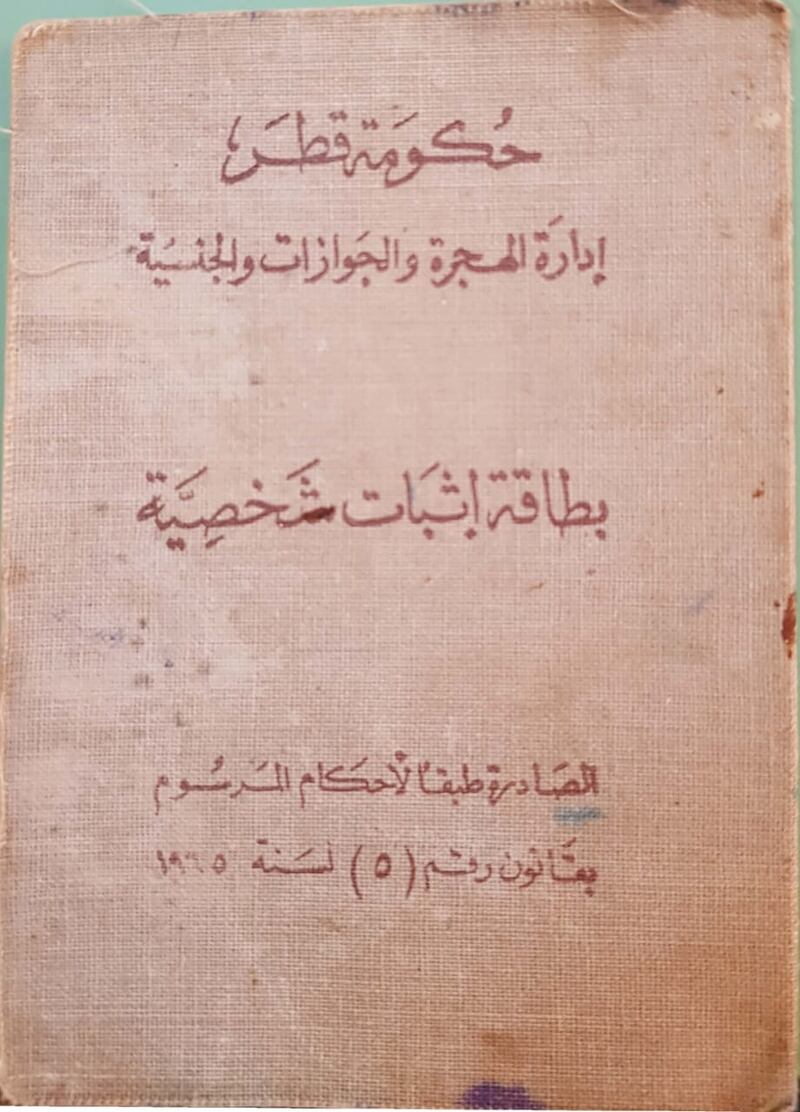 حُكُومَة قطَر
إدارَة الهجرة والجَوازات والجنسيَة
بطاقَة اثبَات شَخصِيَّة
الصَادرة طبقاً لأحكام المَرسُوم
بقَانون رقم (٥) لسَنة ١٩٦٥